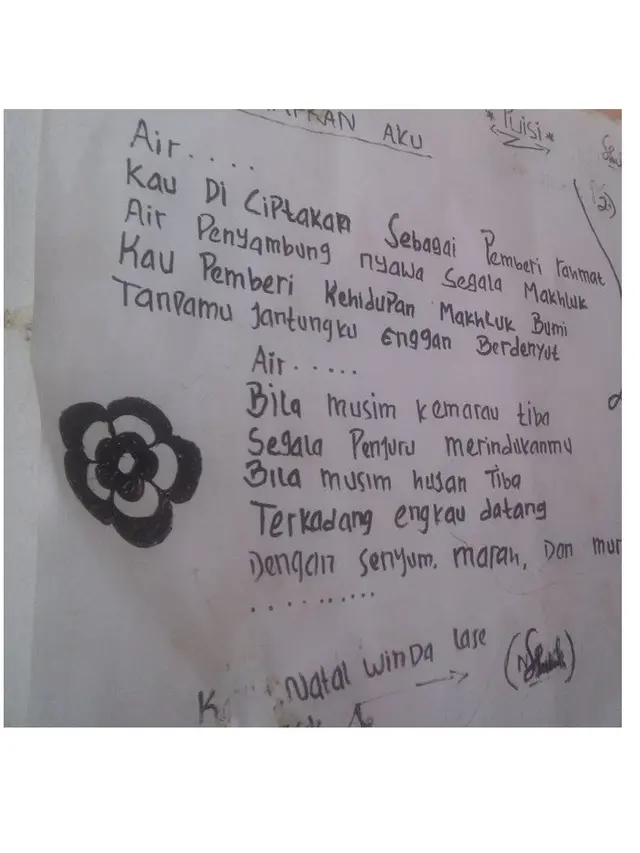 AKU
* Puisi *
2.)
Air....
Kau Di Ciptakan Sebagai Pemberi rahmat
Air Penyambung nyawa Segala Makhluk
Kau Pemberi Kehidupan Makhluk Bumi
Tanpamu Jantungku Enggan Berdenyut
Air.....
Bila musim kemarau tiba
Segala Penjuru merindukanmu
Bila musim hujan Tiba
Terkadang engkau datang
Dengan senyum, marah, Dan mur
..........
Natal Winda Lase